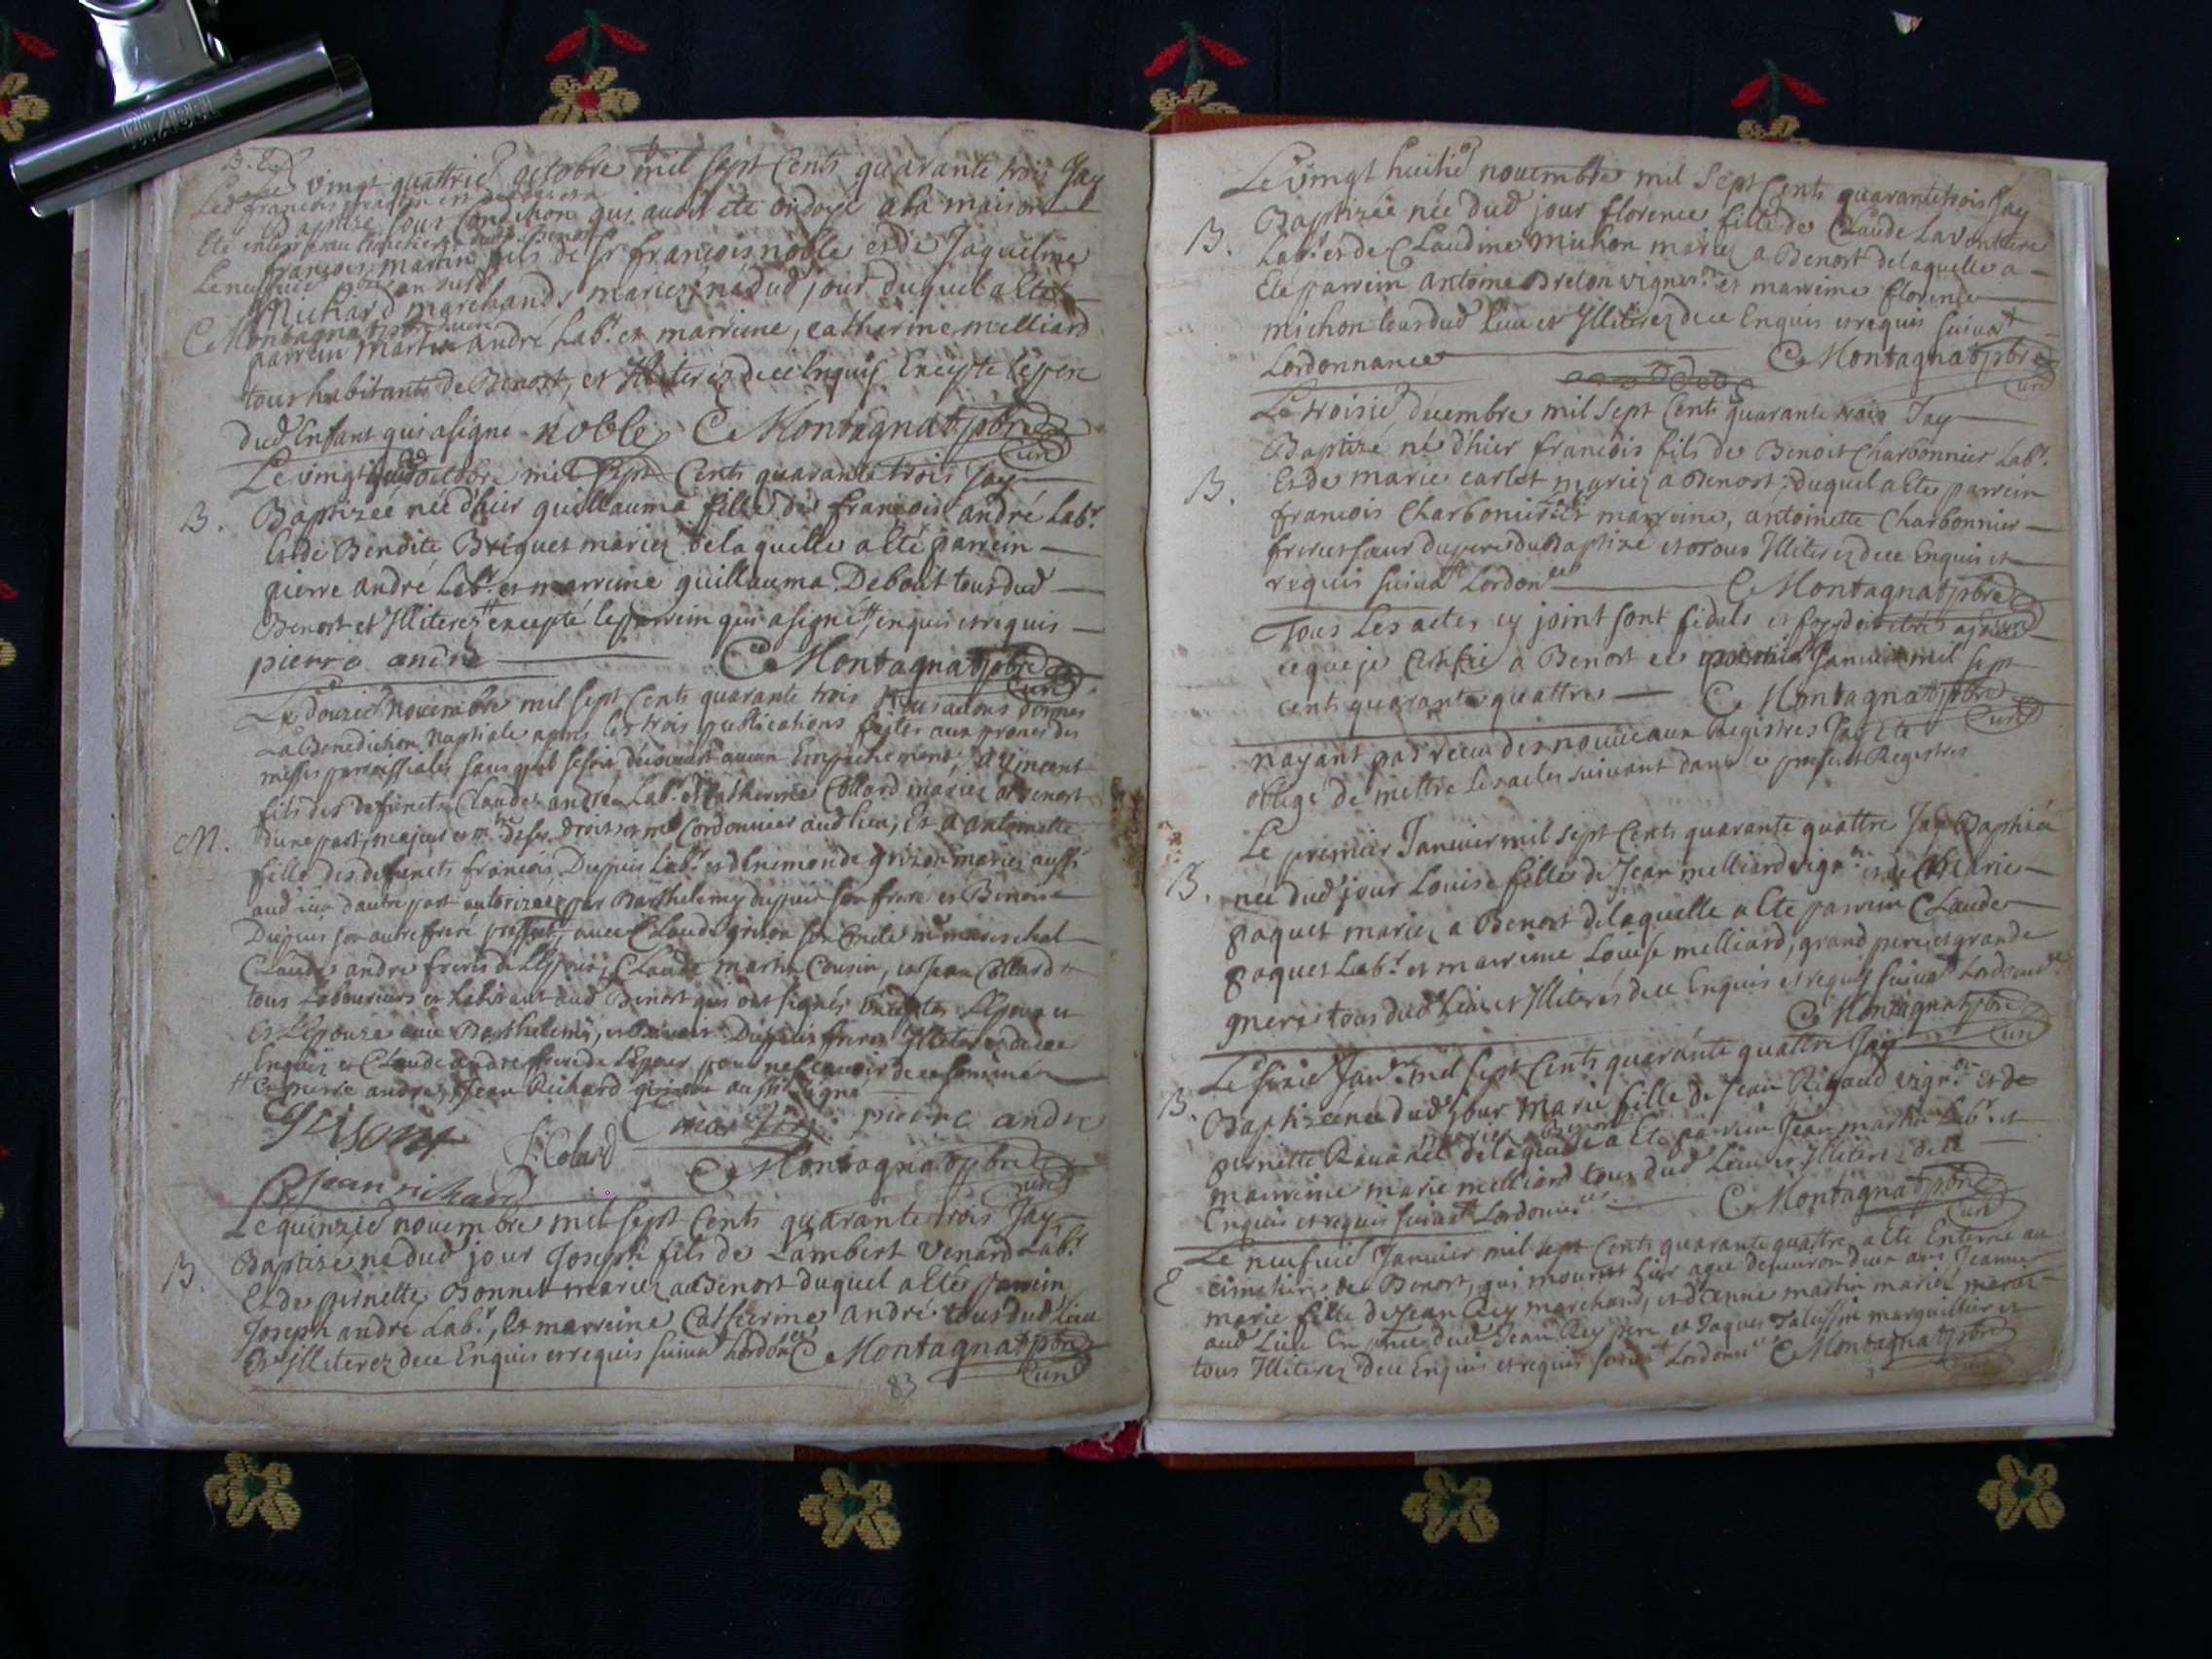 B. E.
Le vingt quattrie octobre mil sept Cents quarante trois Jay
Led francois martin est
baptize sous Condition qui avoit ete ondoyé a la maison
Ete enterré au cimetiere dud Benost
francois martin fils de sr francois noble et de Jaqueline
Le neufvie
Richard marchands mariez, né dud jour duquel a Eté
C Montagnat pbre curé
parrein martin andré Labr. et marreine, catherine melliard
tous habitants de Benost, et Illiterez de ce Enquis Excepte le pere
dud Enfant qui a signé noble C Montagnat pbre
curé
Le vingt octobre mil sept Cents quarante trois Jay
B. Baptizée née d'hier guillauma fille de francois andré Labr.
Et de Benoite Briquet mariez de laquelle a Eté parrein
pierre andré Labr. et marreine guillauma Debout tous dud
Benost et Illiterez excepté le parrein qui a signé, enquis et requis
pierre andre C Montagnat pbre
curé
Le douzie Novembre mil sept Cents quarante trois Nous avons donnés
La Benediction Nuptiale apres les trois publications faites aux prones des
messes parroissiales sans quil se soit decouvert aucun Empechement, a vincent
fils des defuncts Claude andré Labr. et Catherine Collard mariez a Benost
M. dune part, majeur et mtre de ses droits et me Cordonnier aud lieu, Et a antoinette
fille des defuncts francois Dupuis Labr. et d'Enimonde grizon mariez aussi
aud lieu d'autre part autorizée par Barthelemy dupuis son frere et Benoist
Dupuis son autre frere presents, avec Claude grison son Oncle me mareschal
Claude andre freres de L'Epoux, Claude martin Cousin, et Jean Collard
tous Laboureurs et habitants aud Benost qui ont signés Exceptes L'Epoux et
Et L'Epouze avec Barthelemi, et Benoist Dupuis freres Illiterez de ce
Enquis et Claude andre frere de L'Epoux pour ne scavoir de ce sommé
et pierre andre, Jean Richard aussi signé
Grison J. Colard C martin pierre andre
Jean richard C Montagnat pbre
curé
Le quinzie novembre mil sept Cents quarante trois Jay
B. Baptizé né dud jour Joseph fils de Lambert Venard Labr.
Et de pernette Bonnet mariez a Benost duquel a Eté parrein
Joseph andré Labr., Et marreine Catherine andré tous dud lieu
Et Illiterez de ce Enquis et requis suivat Lordonce C Montagnat pbre
curé
83
Le vingt huitie novembre mil Sept Cents quarante trois Jay
B. Baptizée née dud jour florence fille de Claude Laventure
Labr. et de Claudine Michon mariez a Benost de laquelle a
Eté parrein antoine Breton vigneron et marreine florence
michon tous dud lieu et Illiterez de ce Enquis et requis suivat
Lordonnance C Montagnat pbre
curé
Le troisie decembre mil sept Cents quarante trois Jay
Baptizé né d'hier francois fils de Benoit Charbonnier Labr.
B. Et de marie carlet mariez a Benost, duquel a Eté parrein
francois Charbonnier et marreine, antoinette Charbonnier
frere et soeur du pere du Baptizé et tous Illiterez de ce Enquis et
requis suivat Lordonce C Montagnat pbre
curé
Tous Les actes cy joint sont fidels et
ce que je Certifie a Benost ce Janvier mil sept
cents quarante quattre C Montagnat pbre
curé
nayant pas receu des nouveaux Registres Jay Eté
obligé de mettre les actes suivant dans ce present Registres
Le premier Janvier mil sept Cents quarante quattre Jay Baptizé
B. née dud jour Louise fille de Jean melliard vignn et de Marie
paquet mariez a Benost de laquelle a Eté parrein Claude
paquet Labr. et marreine Louise melliard, grand pere et grande
mere tous dud lieu et Illiterés de ce Enquis et requis suivat Lordonnce
C Montagnat pbre
curé
Le sixie Janver mil sept Cents quarante quattre Jay
B. Baptizée née dud jour Marie fille de Jean Rigaud vignn Et de
mariez a Benost
pernette Ravanel de laquelle a Eté parrein Jean martin Labr. et
marreine marie melliard tous dud Lieu et Illiterez de ce
Enquis et requis suivat Lordonnce C Montagnat pbre
curé
Le neufvie Janvier mil sept Cents quarante quattre a Eté Enterrée au
E cimetiere de Benost, qui mourut hier agée denviron deux ans Jeanne
marie fille de Jean Rey marchand, et d'anne martin mariez
aud Lieu En presence dud Jean Rey pere et Jaques Talussin marguillier et
tous Illiterez de ce Enquis et requis suivat Lordonnce C Montagnat pbre
curé